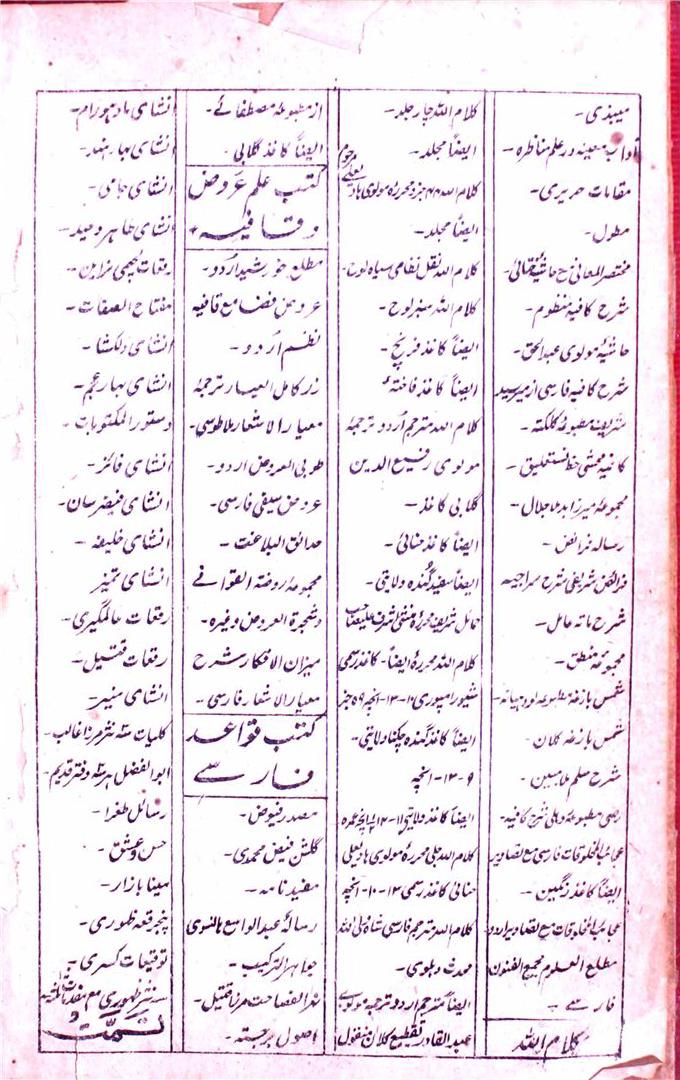 میبذی۔
آداب معینیہ در علم مناظرہ۔
مقامات حریری۔
مطول۔
مختصر المعانی مع حاشیہ
شرح کافیہ منظوم۔
حاشیہ مولوی عبد الحق۔
شرح کافیہ فارسی از میر سید
شریف مطبوعہ کلکتہ۔
کافیہ محشی خط نستعلیق۔
مجموعہ میرزاہد ملا جلال۔
رسالہ فرائض۔
فرائض شریفی شرح سراجیہ
شرح مائۃ عامل۔
مجموعہ منطق۔
شمس بازغہ مطبوعہ لودہیانہ۔
شمس بازغہ کلان۔
شرح سلم ملا مبین۔
رضی مطبوعہ دہلی شرح کافیہ۔
عجائب المخلوقات فارسی مع تصاویر
ایضاً کاغذ رنگین۔
عجائب المخلوقات مع تصاویر اردو
مطلع العلوم مجمع الفنون
فارسے۔
کلام اللہ
کلام اللہ چار جلد۔
ایضاً مجلد۔
کلام اللہ ۴۴ جزو محررہ مولوی ہادی
یعلے مرحوم
ایضاً مجلد۔
کلام اللہ نقل نظامی سیاہ لوح۔
کلام اللہ سبز لوح۔
ایضاً کاغذ فرنچ۔
ایضاً کاغذ فاختہ
کلام اللہ مترجم اردو ترجمہ
مولوی رفیع الدین
گلابی کاغذ۔
ایضاً کاغذ حنائی۔
ایضاً سفید گندہ ولایتی۔
حمائل شریف محررہ منشی اشرف علیصاحب
کلام اللہ محررہ ایضاً۔ کاغذ رسمی
شیورامپوری ۱۰۔۱۳۔انچہ ۵۹ جز
ایضاً کاغذ گندہ چکنا ولایتی۔
۹۔۱۳۔انچہ
ایضاً کاغذ ولایتی ۱۱۔۱۳
کلام اللہ جلی محررہ مولوی ہادیعلی
حنائی کاغذ رسمی ۱۳۔۱۰۔انچہ
کلام اللہ مترجم فارسی شاہ ولی اللہ
محدث دہلوی۔
ایضاً مترجم اردو ترجمہ مولوی
عبد القادر تقطیع کلان منقول
از مطبوعہ مصطفائے۔
ایضاً کاغذ گلابی۔
کتب علم عروض
و قافیہ
مطلع خورشید اردو۔
عروض مع قافیہ
نظم اردو۔
زر کامل العیار ترجمہ
معیار الاشعار ملا طوسی۔
طوبی العروض اردو۔
عروض سیفی فارسی۔
حدائق البلاغت۔
مجموعہ روضۃ القوافے
و شجرۃ العروض وغیرہ۔
میزان الافکار شرح
معیار الاشعار فارسی۔
کتب قواعد
فارسے
مصدر فیوض۔
گلشن فیض محمدی۔
مفید نامہ۔
رسالہ عبد الواسع ہانسوی
جواہر الترکیب۔
نہر الفصاحت مرزا قتیل۔
اصول برجستہ۔
انشای مادھورام۔
انشای بہار ہند۔
انشای جامی۔
انشای طاہر وحید۔
رقعات لچھمی نراین۔
مفتاح الصفات۔
انشای دلکشا۔
انشای بہار عجم۔
دستور المکتوبات۔
انشای فائز۔
انشای فیض رسان۔
انشای خلیفہ۔
انشای تمیز
رقعات عالمگیری۔
رقعات قتیل۔
انشای منیر۔
کلیات نثر مرزا غالب۔
ابو الفضل ہر سہ دفتر قدیم۔
رسائل طغرا۔
حسن و عشق۔
مینا بازار۔
پنجرقعہ ظہوری۔
توقیعات کسری۔
سہ نثر ظہوری مع مقدمات
تمت